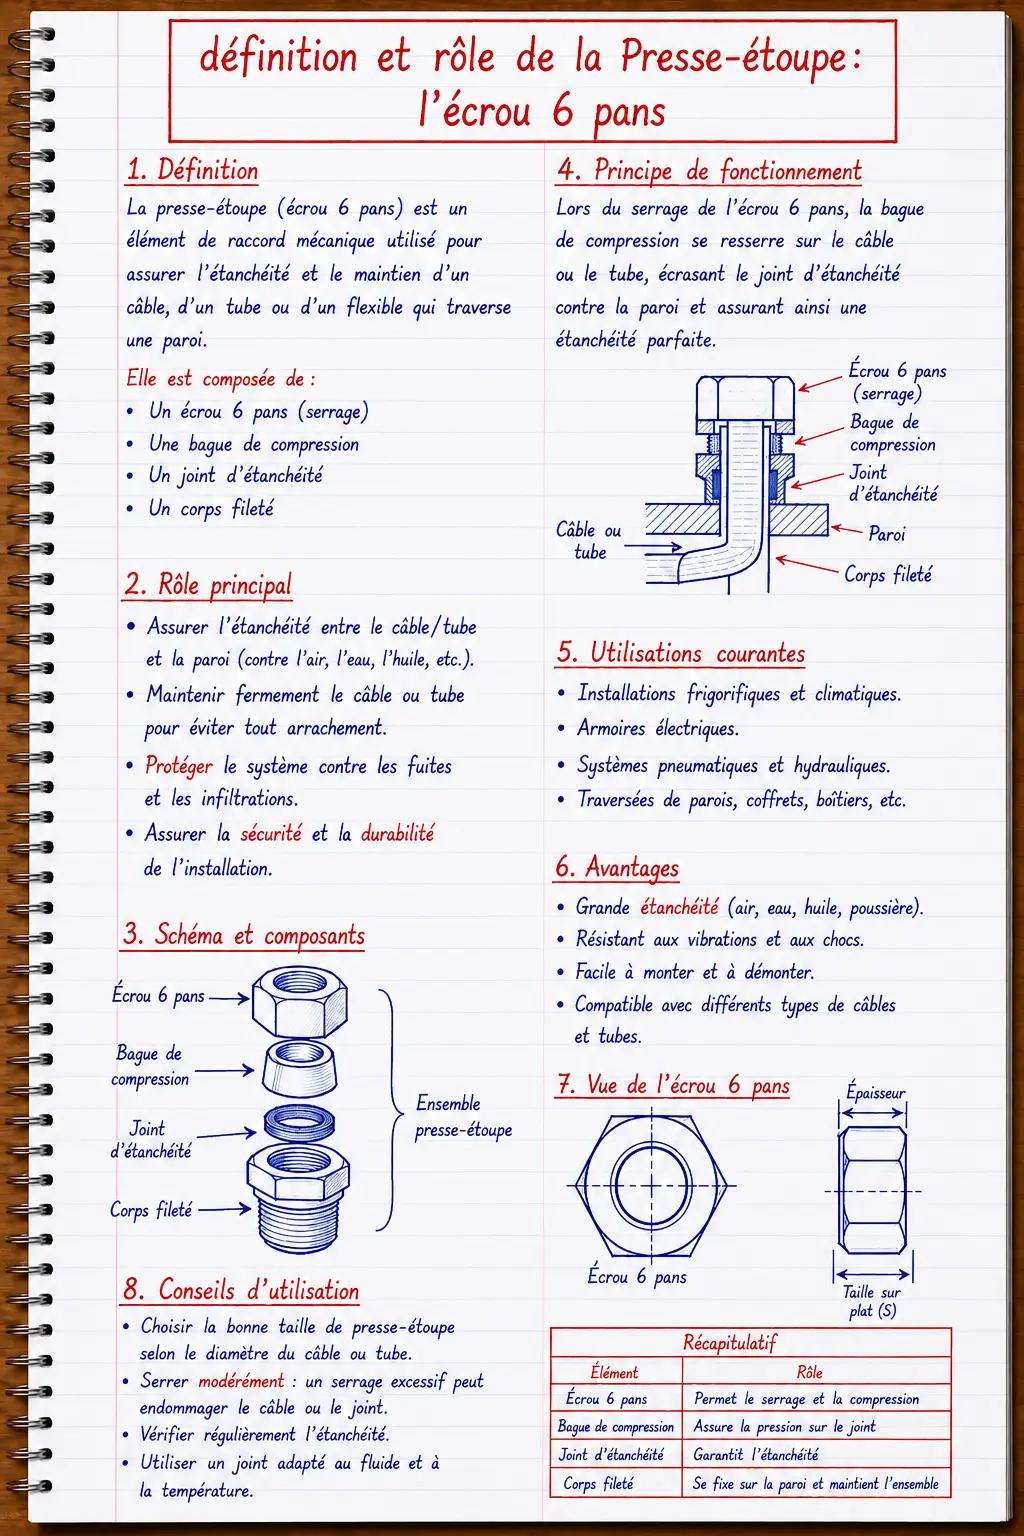 définition et rôle de la Presse-étoupe:
l'écrou 6 pans
1. Définition
La presse-étoupe (écrou 6 pans) est un
élément de raccord mécanique utilisé pour
assurer l'étanchéité et le maintien d'un
câble, d'un tube ou d'un flexible qui traverse
une paroi.
Elle est composée de :
• Un écrou 6 pans (serrage)
• Une bague de compression
• Un joint d'étanchéité
• Un corps fileté
2. Rôle principal
• Assurer l'étanchéité entre le câble/tube
et la paroi (contre l'air, l'eau, l'huile, etc.).
• Maintenir fermement le câble ou tube
pour éviter tout arrachement.
• Protéger le système contre les fuites
et les infiltrations.
• Assurer la sécurité et la durabilité
de l'installation.
3. Schéma et composants
Écrou 6 pans
Bague de
compression
Joint
d'étanchéité
Corps fileté
Ensemble
presse-étoupe
8. Conseils d'utilisation
• Choisir la bonne taille de presse-étoupe
selon le diamètre du câble ou tube.
• Serrer modérément : un serrage excessif peut
endommager le câble ou le joint.
• Vérifier régulièrement l'étanchéité.
• Utiliser un joint adapté au fluide et à
la température.
4. Principe de fonctionnement
Lors du serrage de l'écrou 6 pans, la bague
de compression se resserre sur le câble
ou le tube, écrasant le joint d'étanchéité
contre la paroi et assurant ainsi une
étanchéité parfaite.
Écrou 6 pans
(serrage)
Bague de
compression
Joint
d'étanchéité
Paroi
Corps fileté
Câble ou
tube
5. Utilisations courantes
• Installations frigorifiques et climatiques.
• Armoires électriques.
• Systèmes pneumatiques et hydrauliques.
• Traversées de parois, coffrets, boîtiers, etc.
6. Avantages
• Grande étanchéité (air, eau, huile, poussière).
• Résistant aux vibrations et aux chocs.
• Facile à monter et à démonter.
• Compatible avec différents types de câbles
et tubes.
7. Vue de l'écrou 6 pans
Épaisseur
Écrou 6 pans
Taille sur
plat (S)
Récapitulatif
Élément Rôle
Écrou 6 pans Permet le serrage et la compression
Bague de compression Assure la pression sur le joint
Joint d'étanchéité Garantit l'étanchéité
Corps fileté Se fixe sur la paroi et maintient l'ensemble